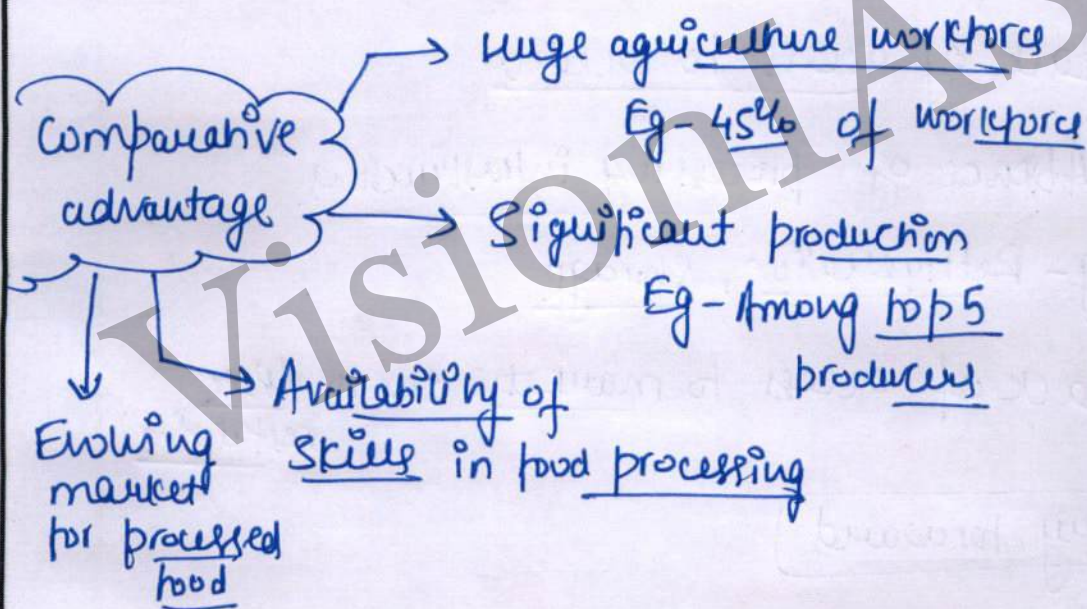 Comparative
advantage
Huge agriculture workforce
Eg- 45% of workforce
Significant production
Eg- Among top 5
producers
Availability of
skills in food processing
Evolving
market
for processed
food
VisionIAS